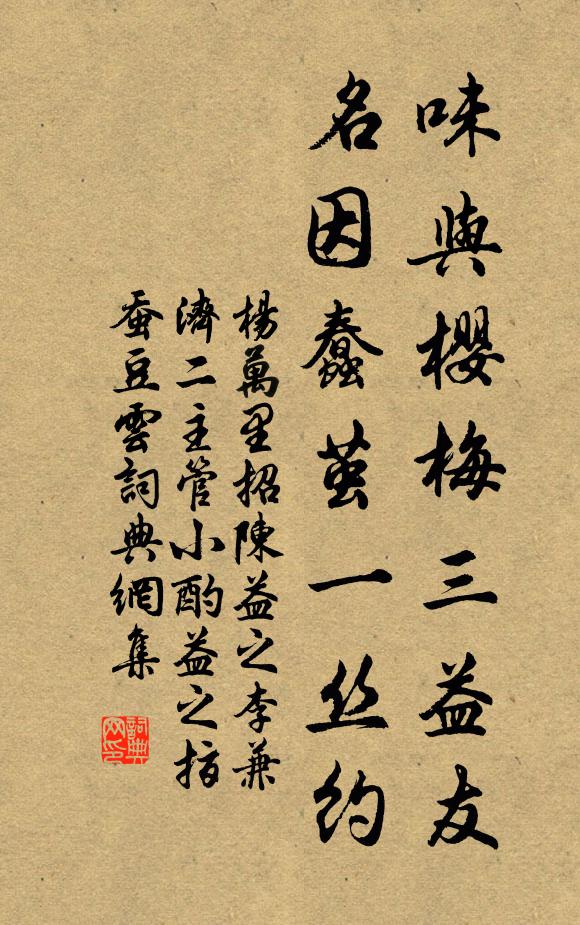 味與櫻梅三益友
名因蠶茧一丝約
楊萬里招陳益之李兼
濟二主管小酌益之指
蚕豆雲詞典網集
詞典
网印